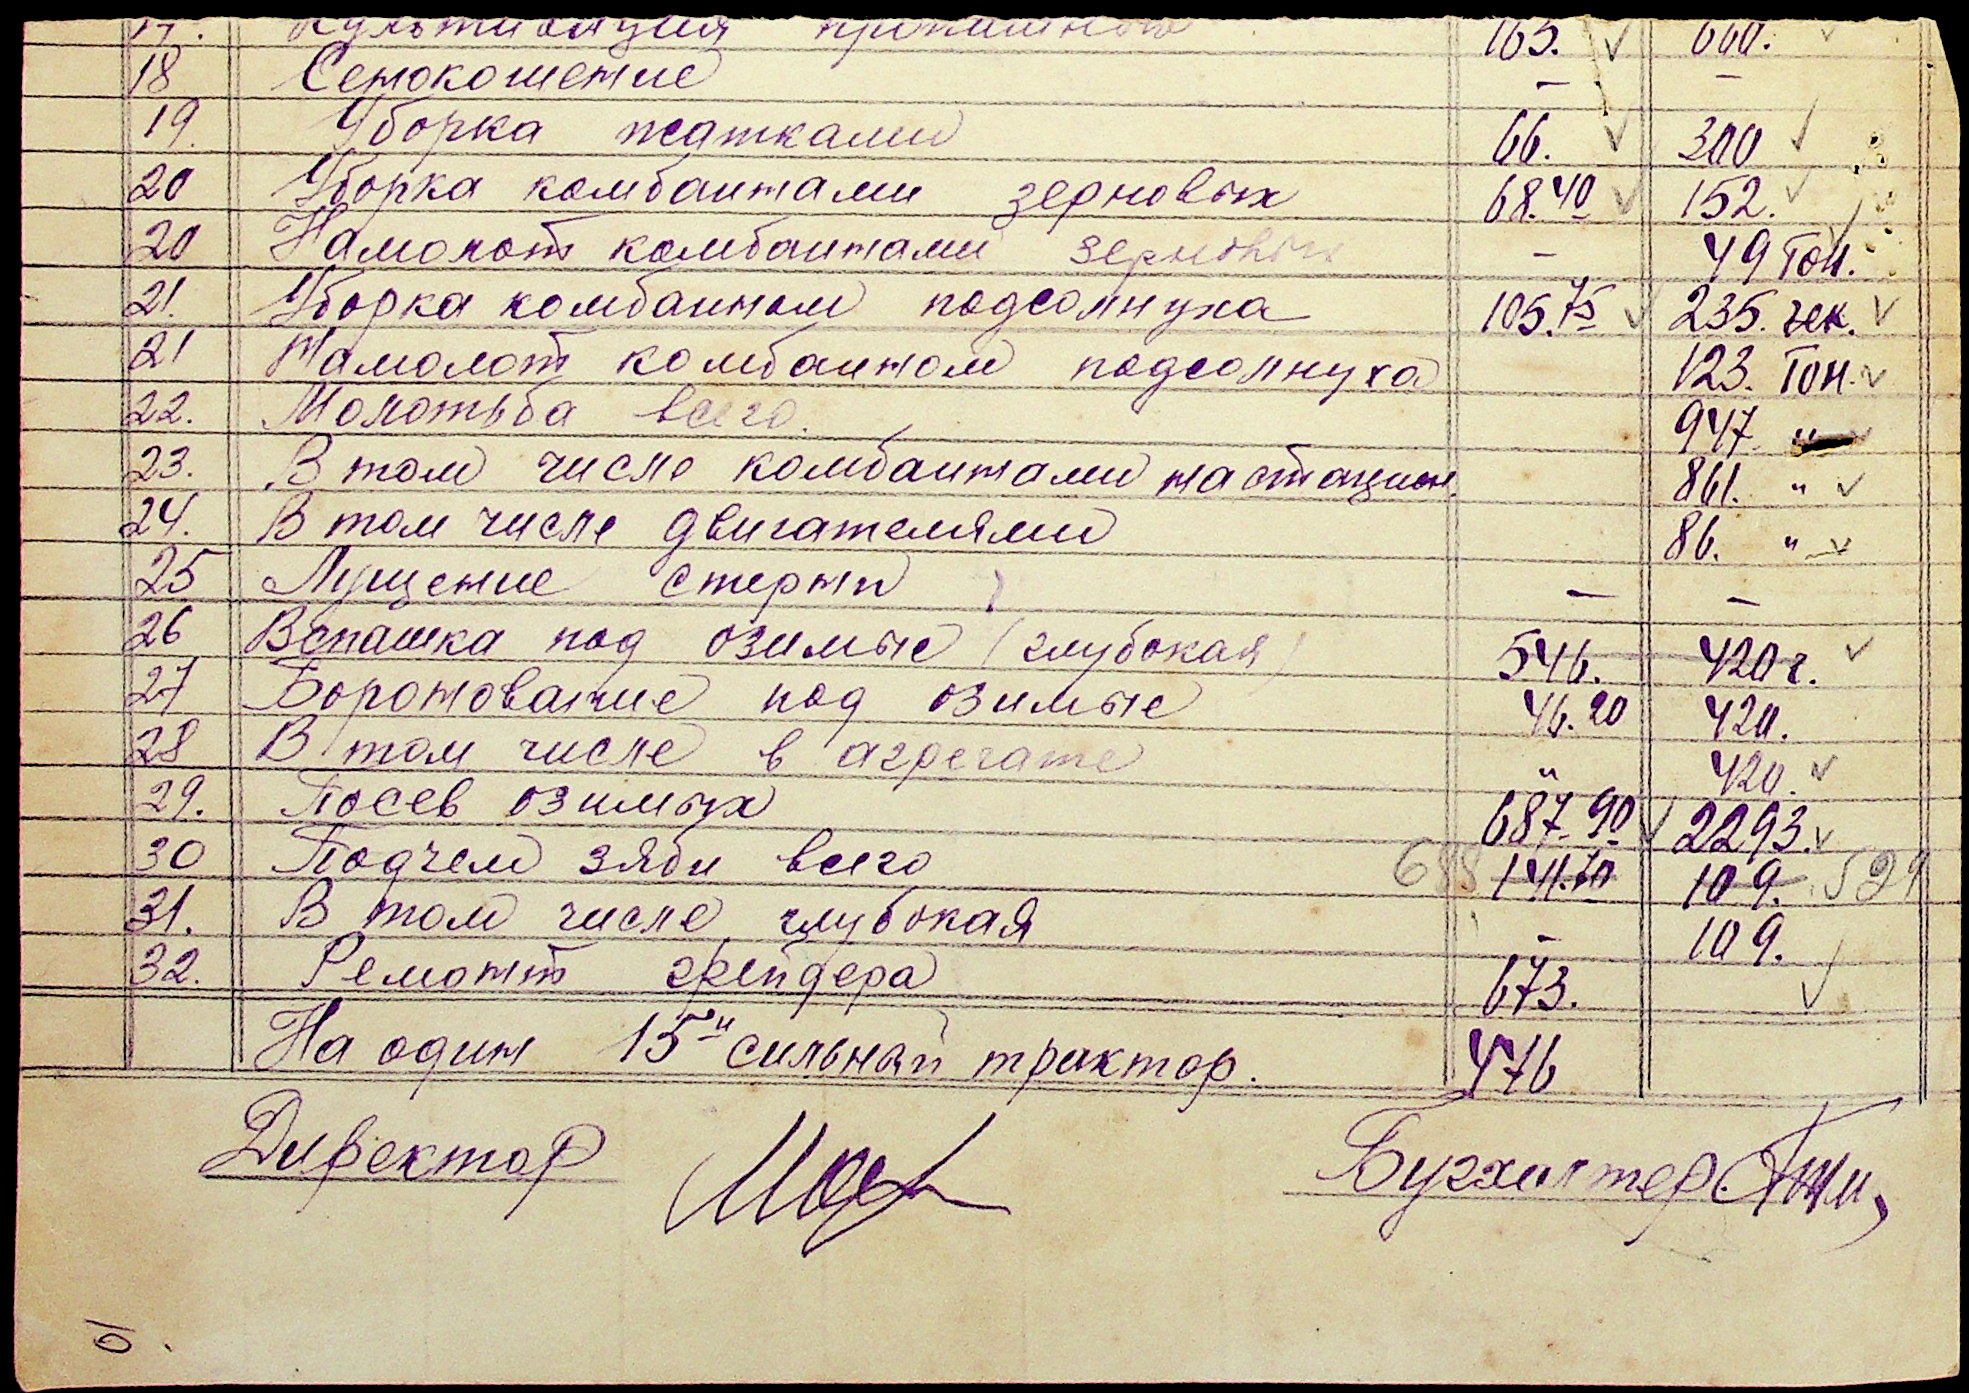 17. Культивация 165. 660.
18 Сенокошение – –
19. Уборка жатками 66. 300
20 Уборка комбайнами зерновых 68.40 152.
20 Намолот комбайнами зерновых – 49 тон.
21. Уборка комбайном подсолнуха 105.75 235. гек.
21 Намолот комбайном подсолнуха 123. тон.
22. Молотьба всего. 947 "
23. В том числе комбайнами на стацион. 861. "
24. В том числе двигателями 86. "
25 Лущение стерни – –
26 Вспашка под озимые (глубокая) 546. 420 г.
27 Боронование под озимые 46.20 420.
28 В том числе в агрегате " 420.
29. Посев озимых 687.90 2293.
30 Подъем зяби всего 688 141.70 109. 529
31. В том числе глубокая – 109.
32. Ремонт грейдера 673.
На один 15и сильный трактор. 476
Директор
Бухгалтер